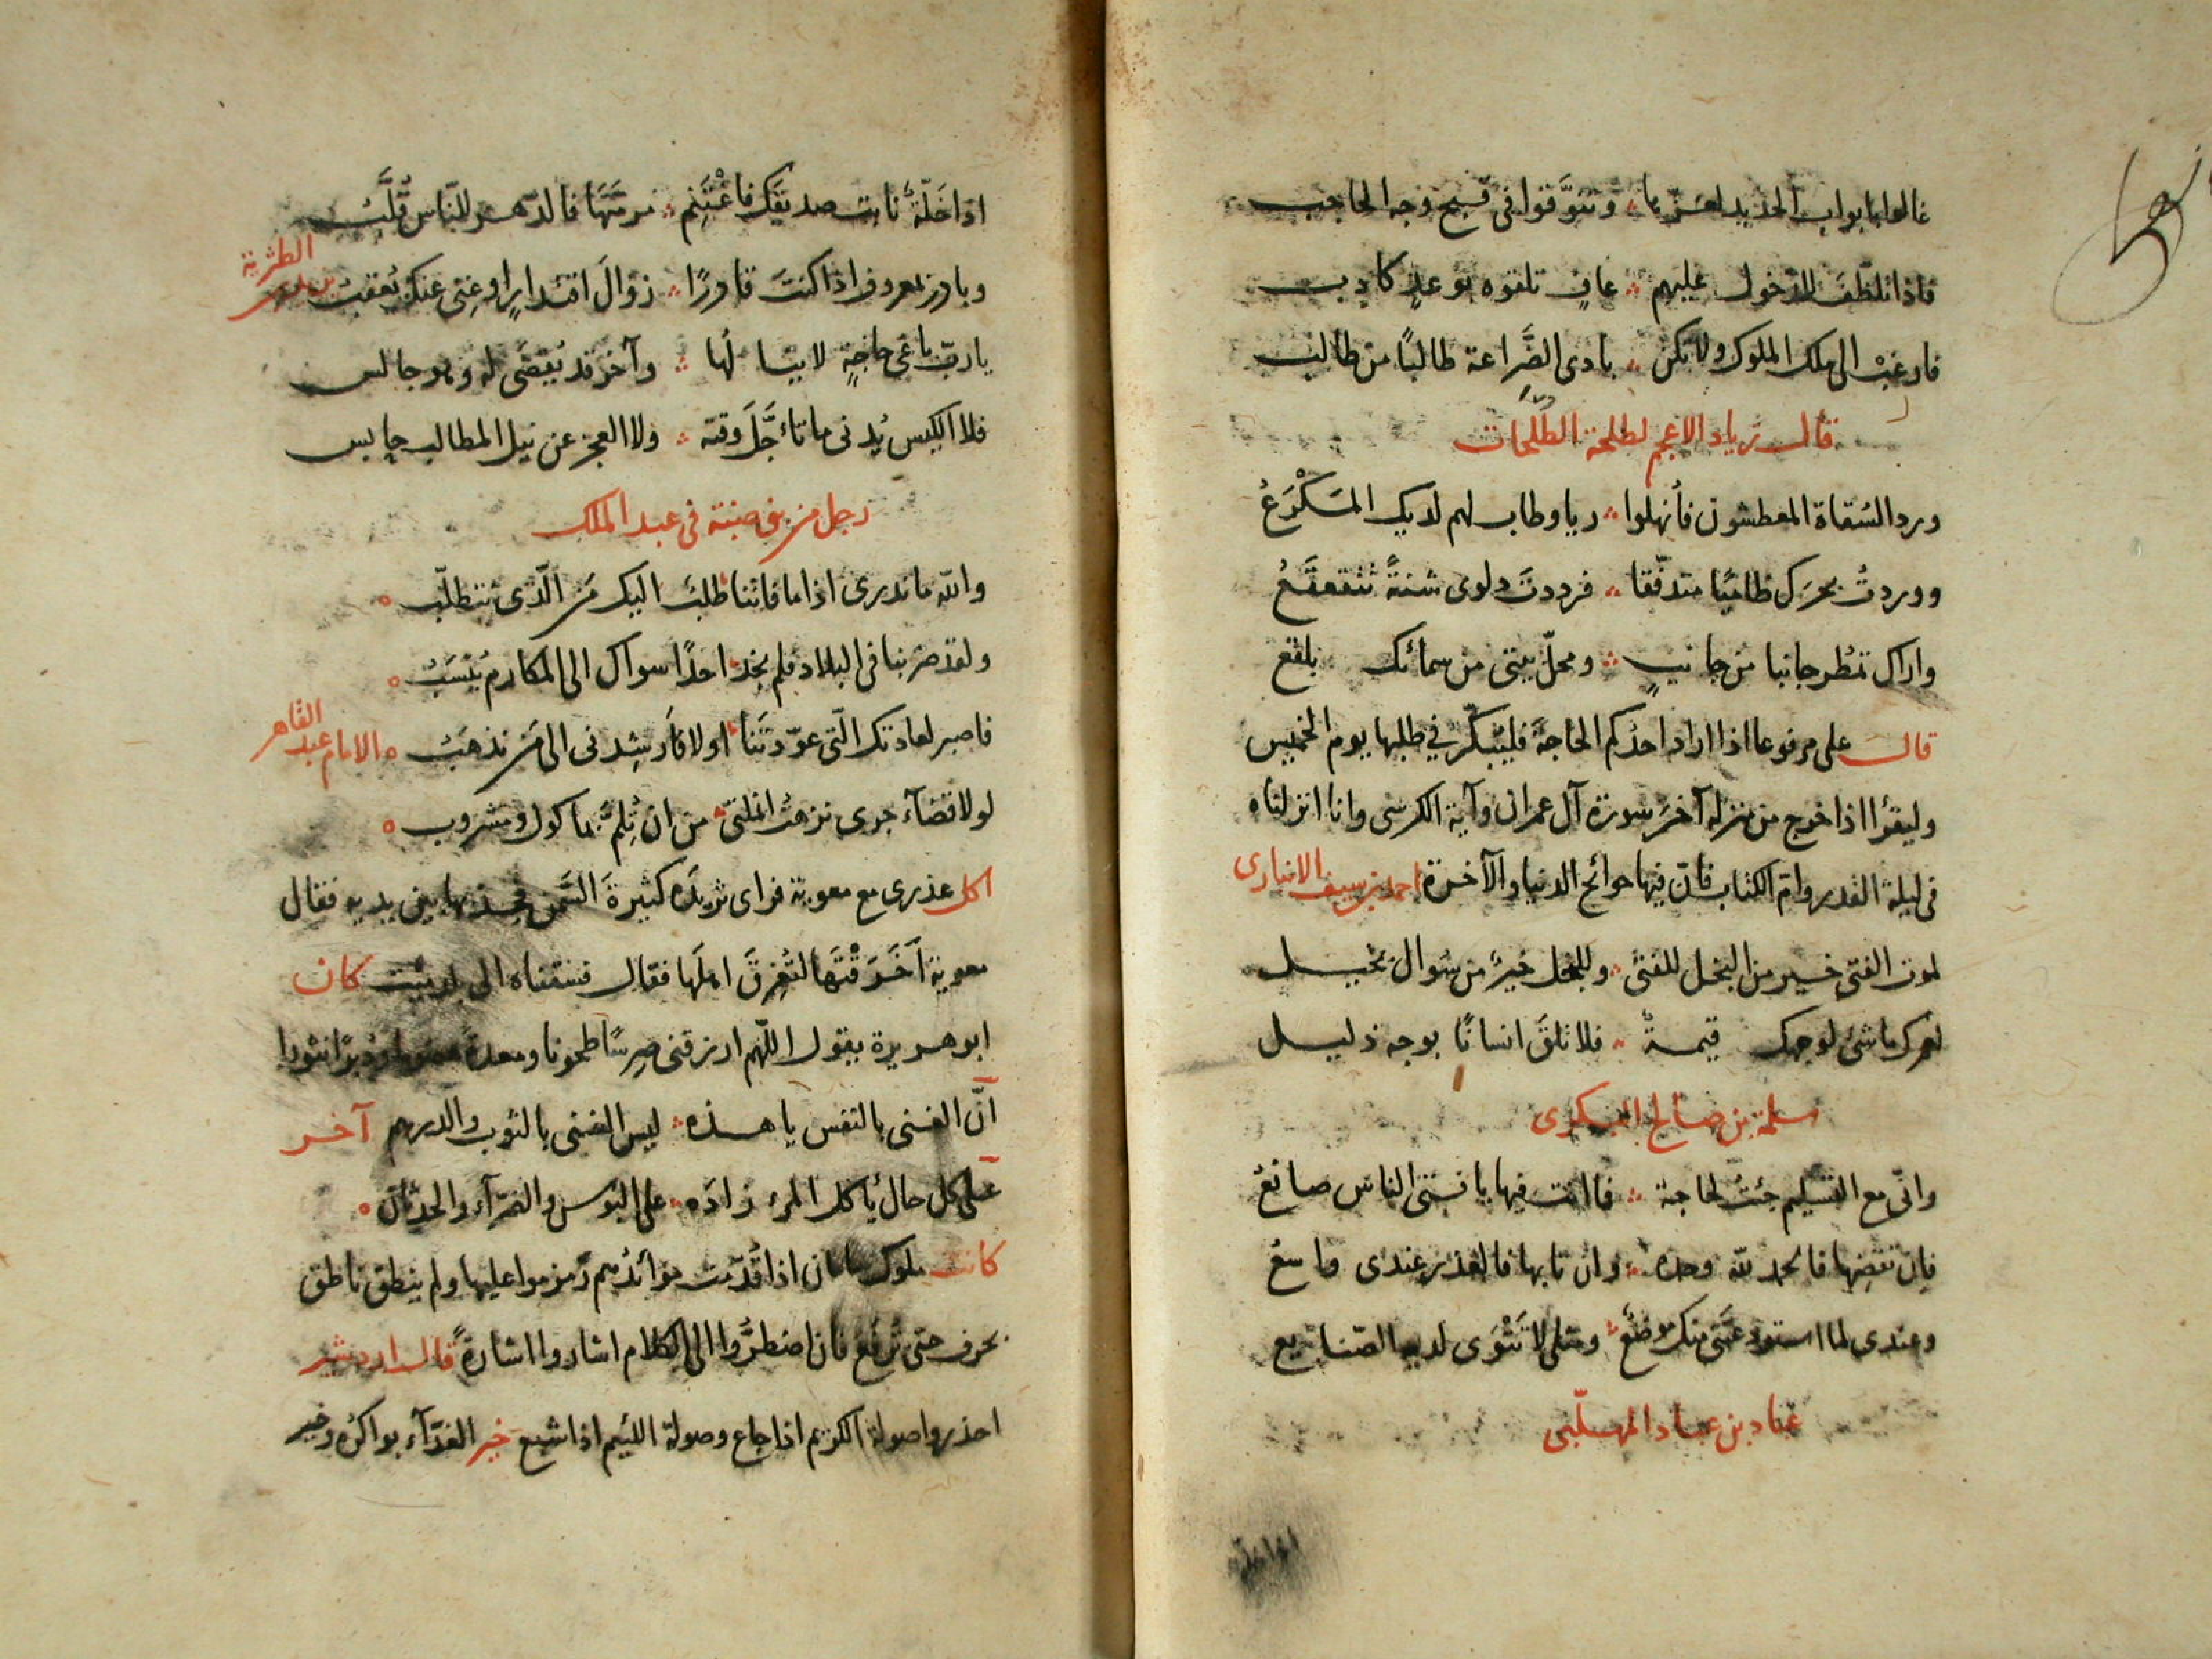 غالوا بابواب الحديد لعزّها وتنوّقوا فى قبح وجه الحاجب
فاذا تلطّف للدّخول عليهم عافٍ تلقوه بوعدٍ كاذب
فارغبْ الى ملك الملوك ولا تكن بادى الضَّراعة طالبًا من طالب
قال زياد الاعجم لطلحة الطلحات
ورد السُقاة المعطشون فأنهلوا ريا وطاب لهم لديك المَكْرَعُ
ووردتُ بحرَك طاميًا متدفّقا فرددتَ دلوى شنةً تتقعقَعُ
واراك تمطُر جانبا من جانبٍ ومحلّ بيتى من سمائك بلقع
قال على مرفوعا اذا اراد احدُكم الحاجةَ فليبكّر في طلبها يوم الخميس
وليقرأ اذا خرج من منزله آخرَ سورة آل عمران وآية الكرسى وانا انزلناه
فى ليلة القدر وامّ الكتاب فانّ فيها حوائج الدنيا والآخرة احمد بن سيف الانبارى
لموت الفتى خير من البخل للفتى وللبخل خيرٌ من سُوال بخيل
لعمرك ما شئ لوجهك قيمةٌ فلا تلقَ انسانًا بوجه ذليل
سلمة بن صالح اليشكرى
وانّى مع التسليم جئتُ لحاجة فما انت فيها يا فتى الناس صانعُ
فان تقضِها فالحمد لله وحده وان تابها فالعذر عندى واسعُ
وعندى لما استودعتَنى منك موضعٌ ومثلى لا تَثْوَى لديه الصّنائع
عباد بن عباد المهلّبى
اذا خَلّةٌ نابت صديقَك فاغْتَنِم مرمّتَها فالدّهر للنّاس قُلَّبُ
وبادر بمعروف اذا كنتَ قادرًا زوالَ اقتدارٍ او غِنى عنك يُعقبُ الطثرية
يا ربّ باغى حاجةٍ لا ينالُها وآخر قد يُقضَى له وهو جالس
فلا الكيس يُدنى ما تأجّلَ وقته ولا العجز عن نيل المطالب حابس
رجل من بنى ضبة فى عبد الملك
والله ما ندرى اذا ما فاتنا طلبٌ اليك من الّذى نتطلّب
ولقد ضربنا فى البلاد فلم نجد احدًا سواك الى المكارم يُنْسَبُ
فاصبر لعادتك الّتى عوّدتَنا اولا فأرشِدنى الى من نذهبُ الامام عبد القاهر
لولا قضآء جرى نزهتُ انملتى من ان تُلِمّ بماكول ومشروب
اكل عذرى مع معوية فراى ثريدة كثيرةَ السّمن فجذبها بين يديه فقال
معوية أخَرَقْتَها لتُغرِقَ اهلَها فقال فسقناه الى بلد ميّت كان
ابو هريرة يقول اللّهم ارزقنى ضِرسًا طحونا ومعدة هضوما ودُبرًا نثورا
انّ الغنى بالنفس يا هذه ليس الغنى بالثوب والدرهم آخر
على كل حال يأكل المرء زادَه على البوس والضرّآء والحدثان
كانت ملوك ساسان اذا قُدّمت موائدُهم زمزموا عليها ولم ينطق ناطق
بحرف حتى تُرفَع فان اضطُرّوا الى الكلام اشاروا اشارةً قال اردشير
احذروا صولة الكريم اذا جاع وصولة اللئيم اذا شبع خير الغدّآء بواكرُه وخير